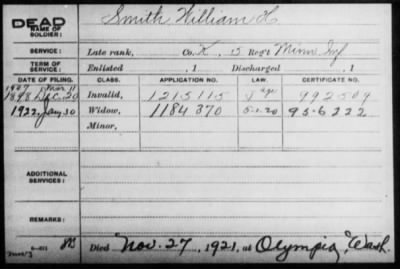 DEAD
NAME OF SOLDIER:
Smith, William H
SERVICE:
Late rank, Co. K, 5 Reg't Minn Inf
TERM OF SERVICE:
Enlisted , 1 Discharged , 1
DATE OF FILING. CLASS. APPLICATION NO. LAW. CERTIFICATE NO.
1907 Mar 11
1898 Dec. 20 Invalid, 1215115 J age 992509
1922, Jany 30 Widow, 1184370 5-1-20 956222
Minor,
ADDITIONAL SERVICES:
REMARKS:
6-811
Died Nov. 27, 1921, at Olympia, Wash.